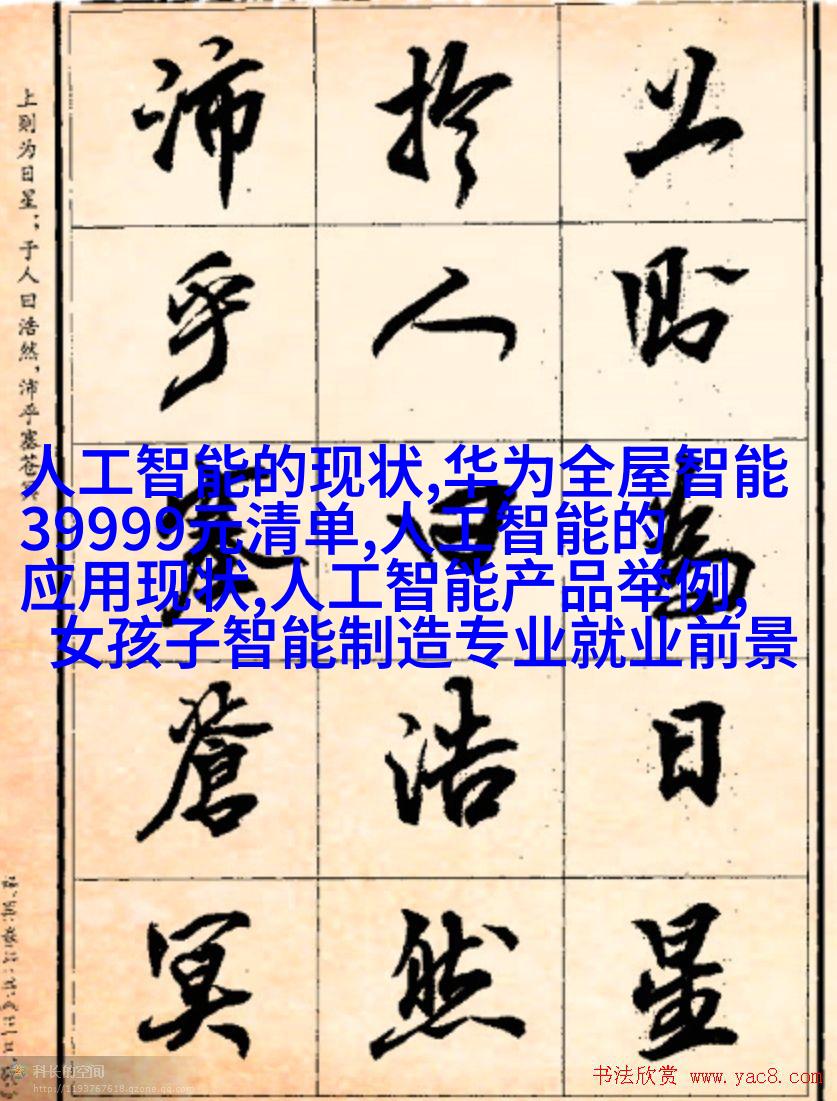 上則為日星
於人曰浩然
沛乎塞蒼冥
上则为日星；于人曰浩然，沛乎塞苍冥
人工智能的现状,华为全屋智能
39999元清单,人工智能的
应用现状,人工智能产品举例,
女孩子智能制造专业就业前景
科长的空间
http://1193767618.qzone.qq.com
书法欣赏 www.yac8.com